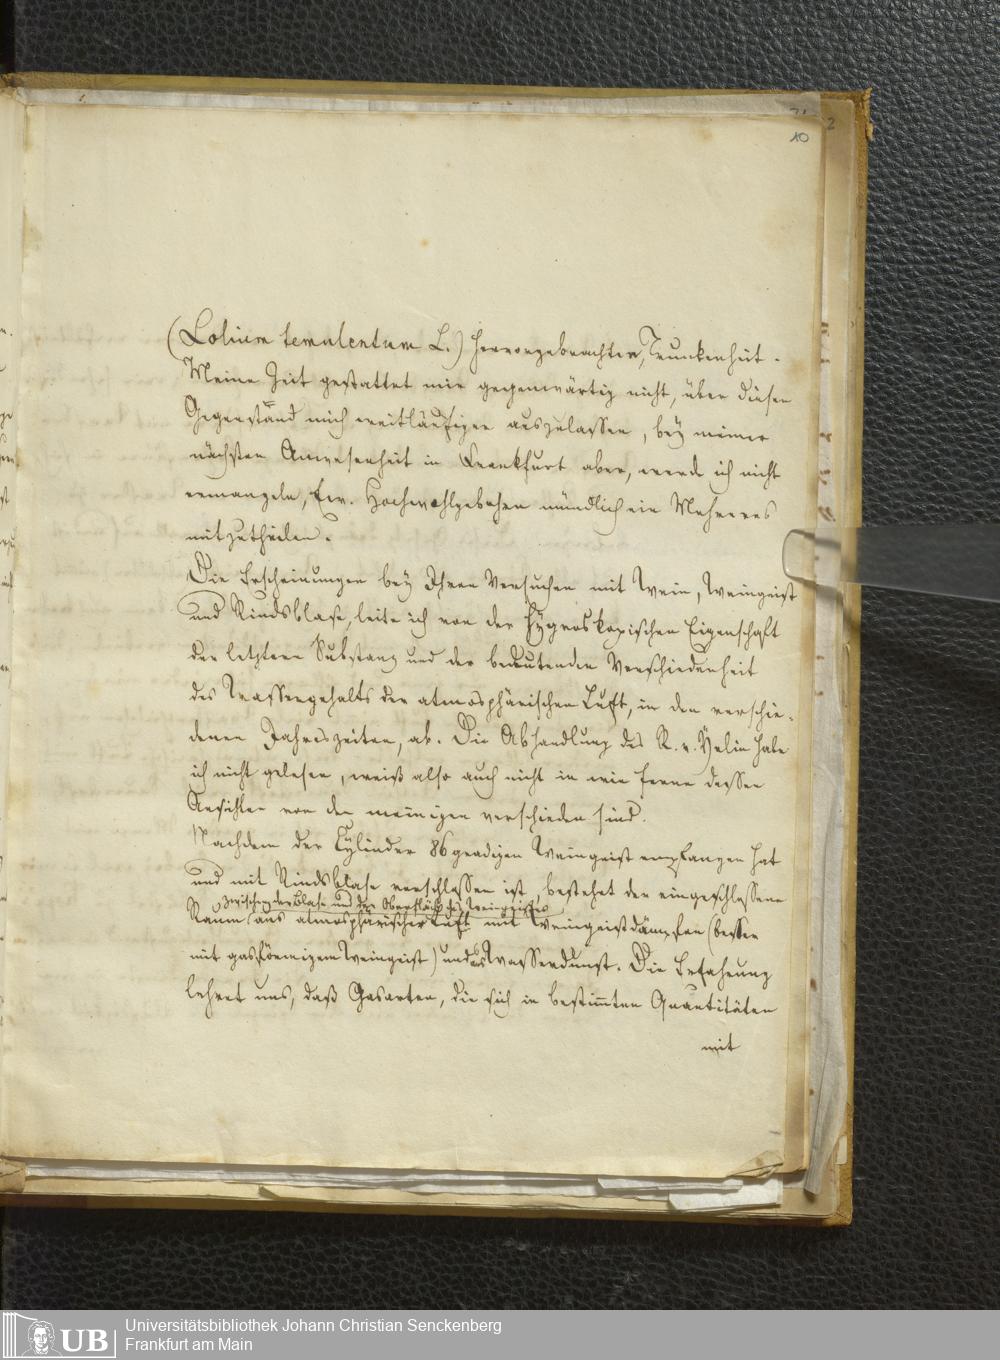 10
2
(Lolium temulentum L.) hervorgebrachten Trunkenheit.
Meine Zeit gestattet mir gegenwärtig nicht, über diesen
Gegenstand mich weitläufiger auszulassen, bey meiner
nächsten Anwesenheit in Frankfurt aber, werde ich nicht
ermangeln, Ew. Hochwohlgebohren mündlich ein Mehreres
mitzutheilen.
Die Erscheinungen bey Ihren Versuchen mit Wein, Weingeist
und Rindsblase, leite ich von der hygroskopischen Eigenschaft
der letztern Substanz und der bedeutenden Verschiedenheit
des Wassergehalts der atmosphärischen Luft, in den verschie-
denen Jahreszeiten, ab. Die Abhandlung des R. v. Yelin habe
ich nicht gelesen, weiß also auch nicht in wie ferne dessen
Ansichten von den meinigen verschieden sind.
Nachdem der Cylinder 86 gradigen Weingeist empfangen hat
und mit Rindsblase verschlossen ist, bestehet der eingeschlossene
zwischen der Blase und der Oberfläche des Weingeistes
Raum aus atmosphärischer Luft mit Weingeistdämpfen (besser
mit gasförmigem Weingeist) und Wasserdunst. Die Erfahrung
lehret uns, daß Gasarten, die sich in bestimmten Quantitäten
mit
UB
Universitätsbibliothek Johann Christian Senckenberg
Frankfurt am Main